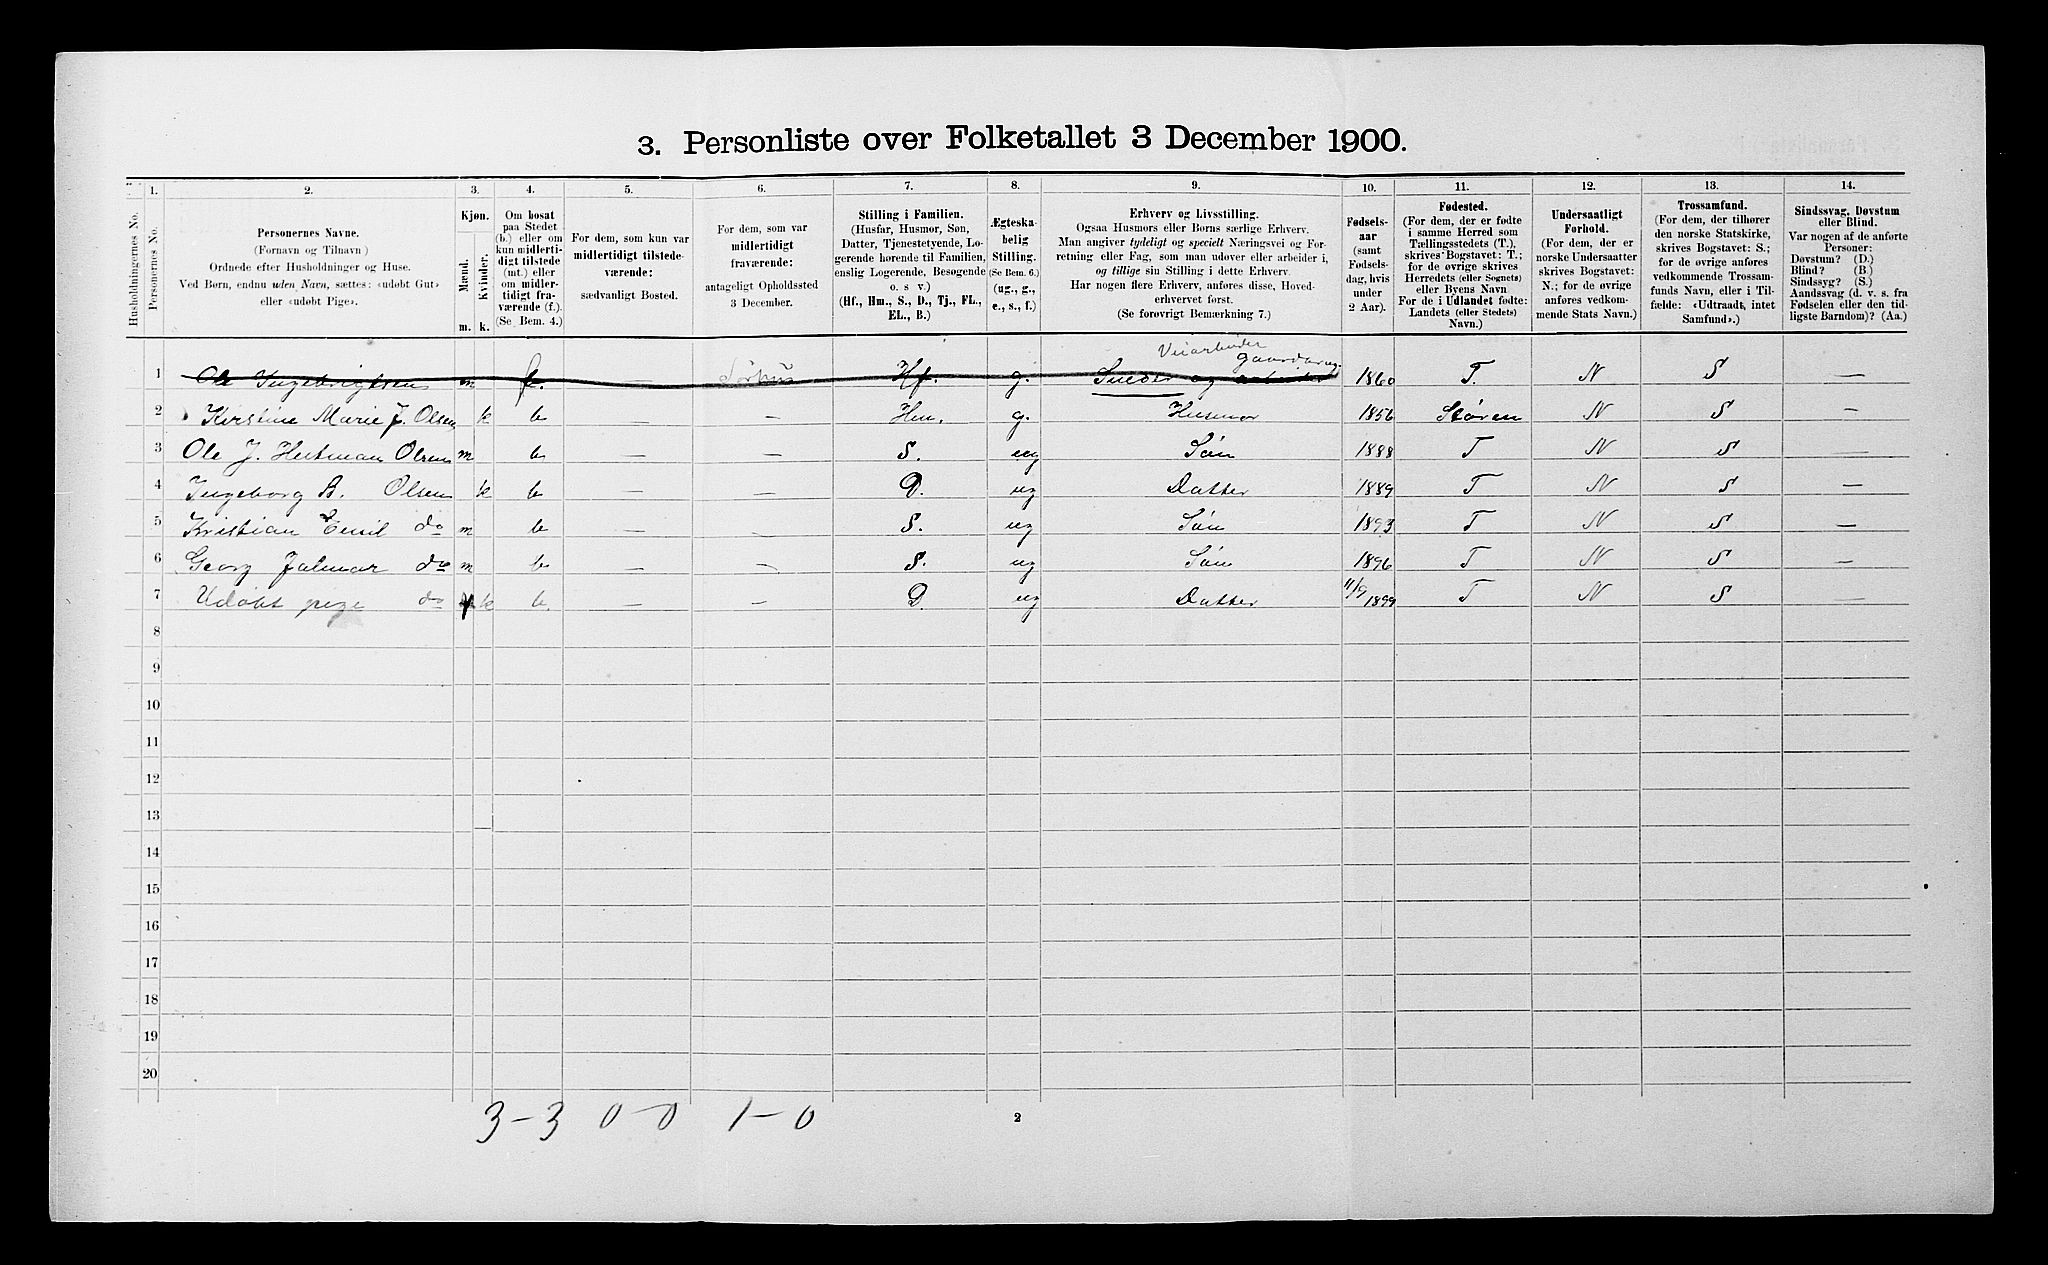 3. Personliste over Folketallet 3 December 1900.
Husholdningernes No.
1. 2. 3. 4. 5. 6. 7. 8. 9. 10. 11. 12. 13. 14.
Personernes No.
Personernes Navne.
(Fornavn og Tilnavn)
Ordnede efter Husholdninger og Huse.
Ved Børn, endnu uden Navn, sættes: «udøbt Gut»
eller «udøbt Pige».
Kjøn.
Mænd. Kvinder.
m. k.
Om bosat
paa Stedet
(b.) eller om
kun midlerti-
digt tilstede
(mt.) eller
om midler-
tidigt fra-
værende (f.).
(Se Bem. 4.)
For dem, som kun var
midlertidigt tilstede-
værende:
sædvanligt Bosted.
For dem, som var
midlertidigt
fraværende:
antageligt Opholdssted
3 December.
Stilling i Familien.
(Husfar, Husmor, Søn,
Datter, Tjenestetyende, Lo-
gerende hørende til Familien,
enslig Logerende, Besøgende
o. s v.)
(Hf., Hm., S., D., Tj., FL.,
EL., B.)
Ægteska-
belig
Stilling.
(Se Bem. 6.)
(ug., g.,
e., s., f.)
Erhverv og Livsstilling.
Ogsaa Husmors eller Børns særlige Erhverv.
Man angiver tydeligt og specielt Næringsvei og For-
retning eller Fag, som man udøver eller arbeider i,
og tillige sin Stilling i dette Erhverv.
Har nogen flere Erhverv, anføres disse, Hoved-
erhvervet først.
(Se forøvrigt Bemærkning 7.)
Fødsels-
aar
(samt
Fødsels-
dag, hvis
under
2 Aar).
Fødested.
(For dem, der er fødte
i samme Herred som
Tællingsstedets (T.),
skrives Bogstavet: T.;
for de øvrige skrives
Herredets (eller Sognets)
eller Byens Navn
For de i Udlandet fødte:
Landets (eller Stedets)
Navn.)
Undersaatligt
Forhold.
(For dem, der er
norske Undersaatter
skrives Bogstavet:
N.; for de øvrige
anføres vedkom-
mende Stats Navn.)
Trossamfund.
(For dem, der tilhører
den norske Statskirke,
skrives Bogstavet: S.;
for de øvrige anføres
vedkommende Trossam-
funds Navn, eller i Til-
fælde: «Udtraadt, intet
Samfund».)
Sindssvag, Døvstum
eller Blind.
Var nogen af de anførte
Personer:
Døvstum? (D.)
Blind? (B.)
Sindssyg? (S.)
Aandssvag (d. v. s. fra
Fødselen eller den tid-
ligste Barndom)? (Aa.)
Veiarbeider
1 Ole Ingebrigtsen m f. — Hf. g. og arbeider 1860 T. N S —
2 Kirstine Marie J. Olsen k b — — Hm. g. Husmor 1856 Støren N S —
3 Ole J. Hartman Olsen m b — — S. ug Søn 1888 T N S —
4 Ingeborg B. Olsen k b — — D. ug Datter 1889 T N S —
5 Kristian Emil do m b — — S. ug Søn 1893 T N S —
6 Georg Jalmar do m b — — S. ug Søn 1896 T N S —
7 Udøbt pige do k b. — — D ug Datter 11/9 1899 T N S —
8
9
10
11
12
13
14
15
16
17
18
19
20
3–3 0–0 1–0 2